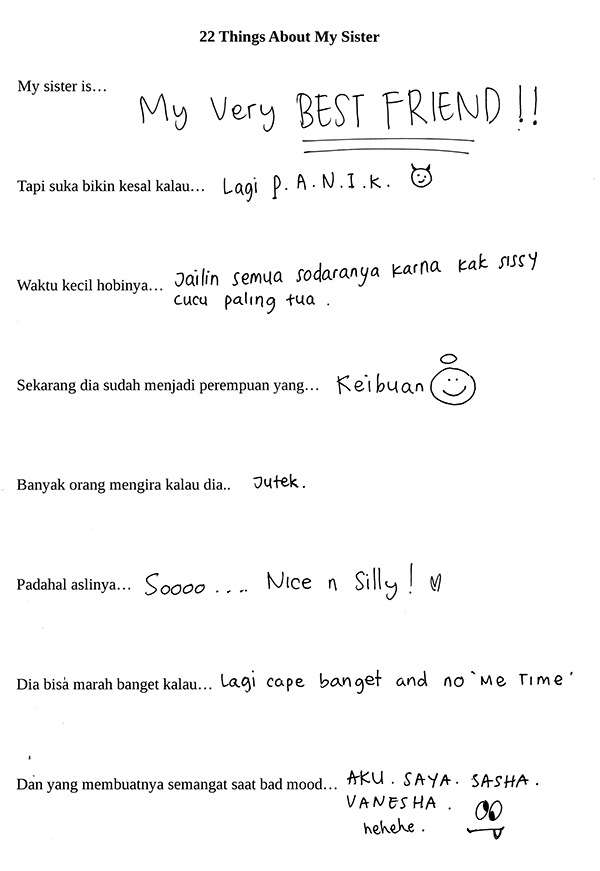 22 Things About My Sister
My sister is… My Very BEST FRIEND!!
Tapi suka bikin kesal kalau… Lagi P.A.N.I.K.
Waktu kecil hobinya… Jailin semua sodaranya karna kak sissy
cucu paling tua.
Sekarang dia sudah menjadi perempuan yang… Keibuan
Banyak orang mengira kalau dia.. Jutek.
Padahal aslinya… Soooo .... Nice n Silly!
Dia bisa marah banget kalau… Lagi cape banget and no 'Me Time'
Dan yang membuatnya semangat saat bad mood… AKU. SAYA. SASHA.
VANESHA.
hehehe.